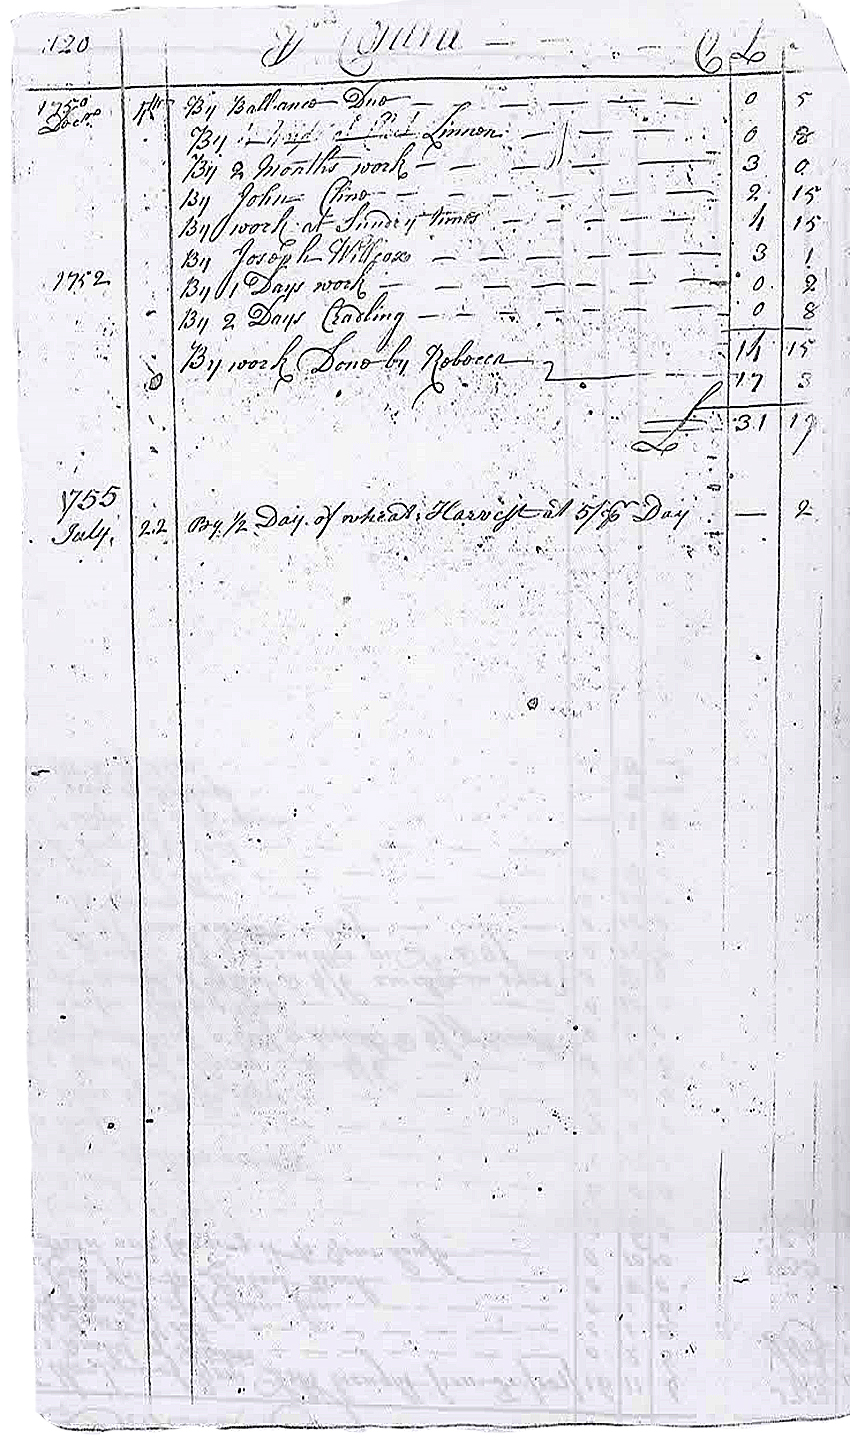 120 Contra — — — C £
1750 Decr 4th By Ballance Due — — — — 0 5
By Linnen — — — 0 8
By 2 Months work — — — — 3 0
By John Cline — — — — 2 15
By work at Sundry times — — — — 4 15
By Joseph Willcox — — — — 3 1
1752 By 1 Days work — — — — 0 2
By 2 Days Cradling — — — — 0 8
14 15
By work Done by Rebecca — — 17 3
£ 31 17
1755
July 22 By 1/2 Day of wheat Harvest at 5/ Day — 2